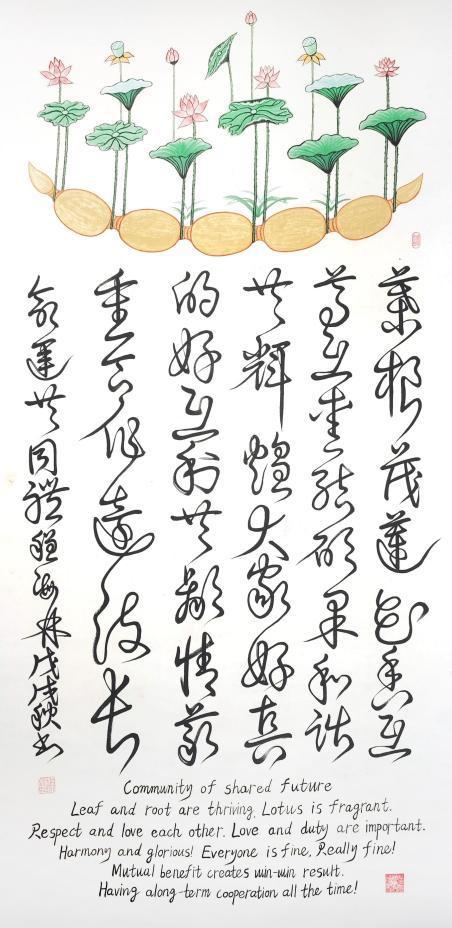 葉根茂蓮花香互
尊互愛結碩果和諧
共輝煌大家好真
的好互利共贏情義
重合作遠長
命運共同體程海林戊戌秋书
Community of shared future
Leaf and root are thriving. Lotus is fragrant.
Respect and love each other. Love and duty are important.
Harmony and glorious! Everyone is fine, Really fine!
Mutual benefit creates win-win result.
Having along-term cooperation all the time!